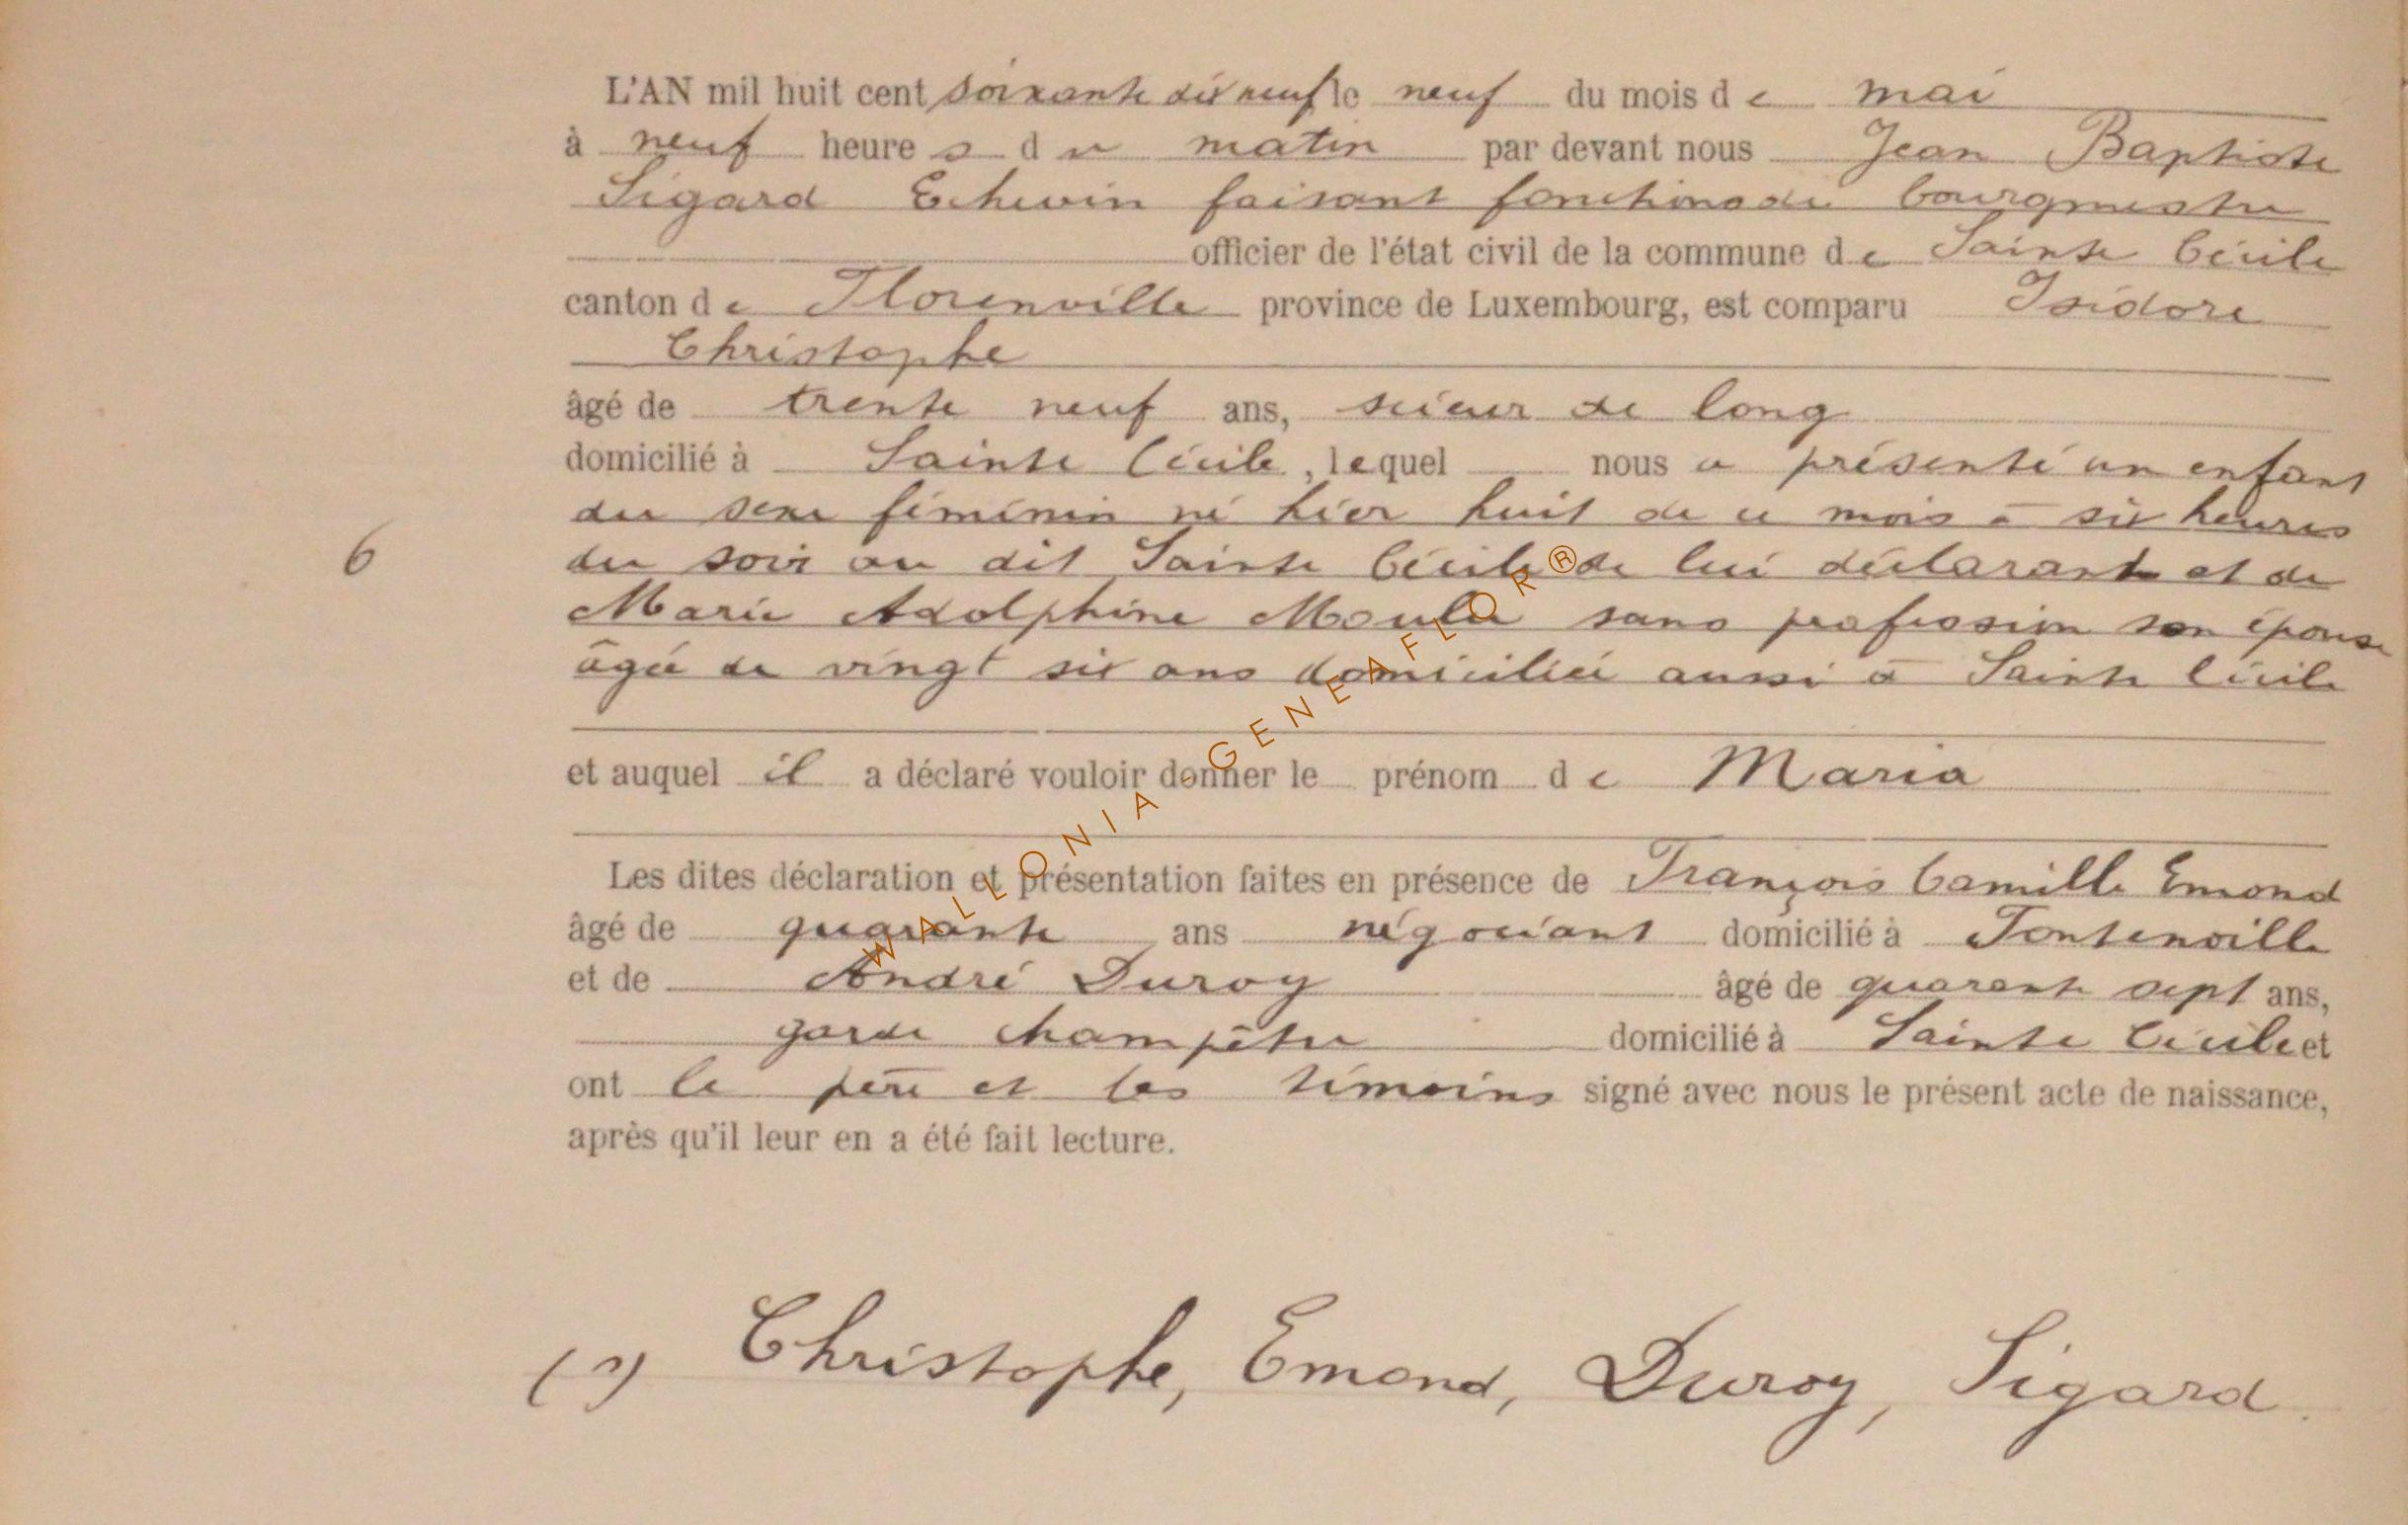 L'AN mil huit cent soixante dix neuf le neuf du mois de mai
à neuf heures du matin par devant nous Jean Baptiste
Sigard Echevin faisant fonctions de bourgmestre
officier de l'état civil de la commune de Sainte Cécile
canton de Florenville province de Luxembourg, est comparu Isidore
Christophe
âgé de trente neuf ans, scieur de long
domicilié à Sainte Cécile, lequel nous a présenté un enfant
du sexe féminin né hier huit de ce mois à six heures
6
du soir au dit Sainte Cécile de lui déclarant et de
Marie Adolphine Moula sans profession son épouse
âgée de vingt six ans domiciliée aussi à Sainte Cécile
et auquel il a déclaré vouloir donner le prénom de Maria
Les dites déclaration et présentation faites en présence de François Camille Emond
âgé de quarante ans négociant domicilié à Fontenoille
et de André Duroy âgé de quarante sept ans,
garde champêtre domicilié à Sainte Cécile et
ont le père et les témoins signé avec nous le présent acte de naissance,
après qu'il leur en a été fait lecture.
Christophe, Emond, Duroy, Sigard.
WALLONIA - GENEAFLOR®